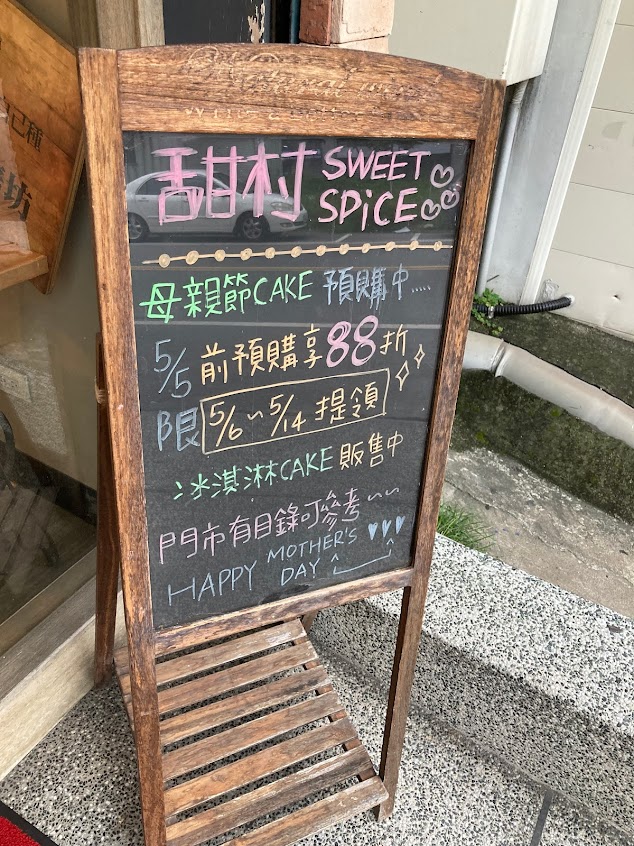 甜村 SWEET SPiCE
母親節CAKE 預購中.....
5/5 前預購享88折
限 5/6～5/14 提領
冰淇淋CAKE 販售中
門市有目錄可參考~~
HAPPY MOTHER'S DAY
自己種
坊